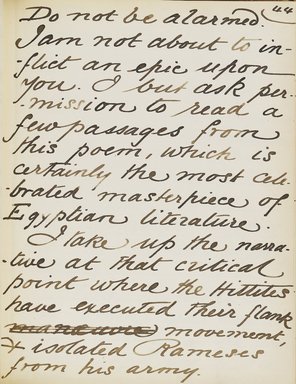 44
Do not be alarmed.
I am not about to in-
flict an epic upon
you. I but ask per-
mission to read a
few passages from
this poem, which is
certainly the most cele-
brated masterpiece of
Egyptian literature.
I take up the narra-
tive at that critical
point where the Hittites
have executed their flank
manœuvre movement,
& isolated Rameses
from his army.